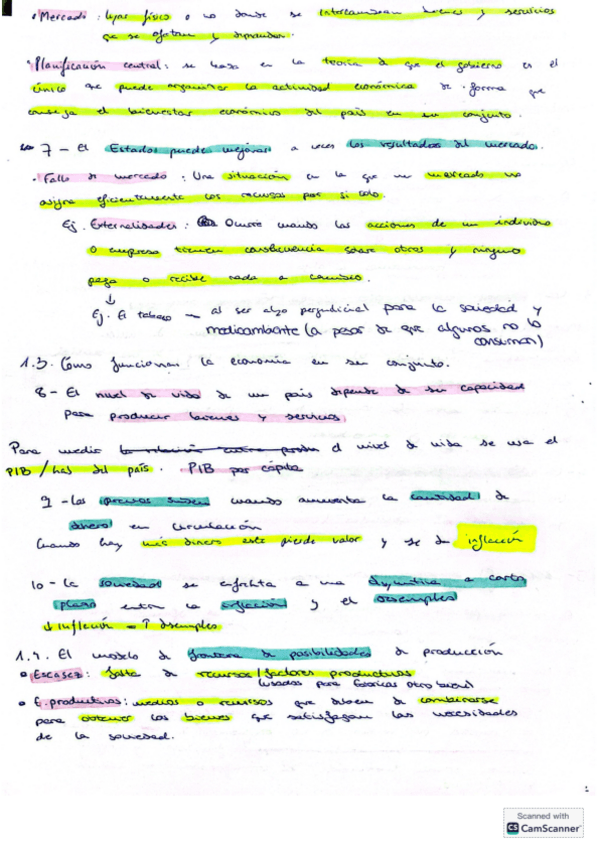 • Mercado: lugar físico o no donde se intercambian bienes y servicios
que se ofertan y demandan.
• Planificación central: se basa en la teoría de que el gobierno es el
único que puede organizar la actividad económica de forma que
consiga el bienestar económico del país en su conjunto.
7 - El Estados puede mejorar a veces los resultados del mercado.
• Fallo de mercado: Una situación en la que un mercado no
asigna eficientemente los recursos por sí solo.
Ej. Externalidades: Ocurre cuando las acciones de un individuo
o empresa tienen consecuencia sobre otros y ninguno
paga o recibe nada a cambio.
↓
Ej. El tabaco — al ser algo perjudicial para la sociedad y
medioambiente (a pesar de que algunos no lo
consuman)
1.3. Como funcionan la economía en su conjunto.
8 - El nivel de vida de un país depende de su capacidad
para producir bienes y servicios
Para medir el nivel de vida se usa el
PIB/hab del país. PIB per cápita
9 - Los precios suben cuando aumenta la cantidad de
dinero en circulación
Cuando hay más dinero este pierde valor y se da inflación
10 - La sociedad se enfrenta a una disyuntiva a corto
plazo entre la inflación y el desempleo
↓ Inflación = ↑ desempleo
1.4. El modelo de frontera de posibilidades de producción
• Escasez: falta de recursos/factores productivos
usados para fabricar otro bien
• F. productivos: medios o recursos que deben de combinarse
para obtener los bienes que satisfagan las necesidades
de la sociedad.
1
Scanned with
CS CamScanner